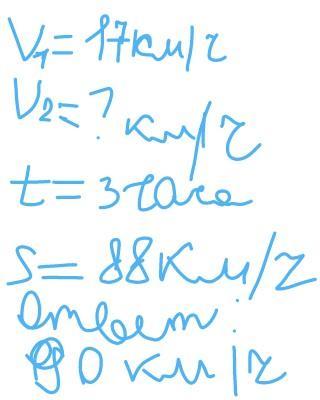 V₁ = 17 км/ч
V₂ = ? км/ч
t = 3 часа
S = 88 км/ч
Ответ:
90 км/ч